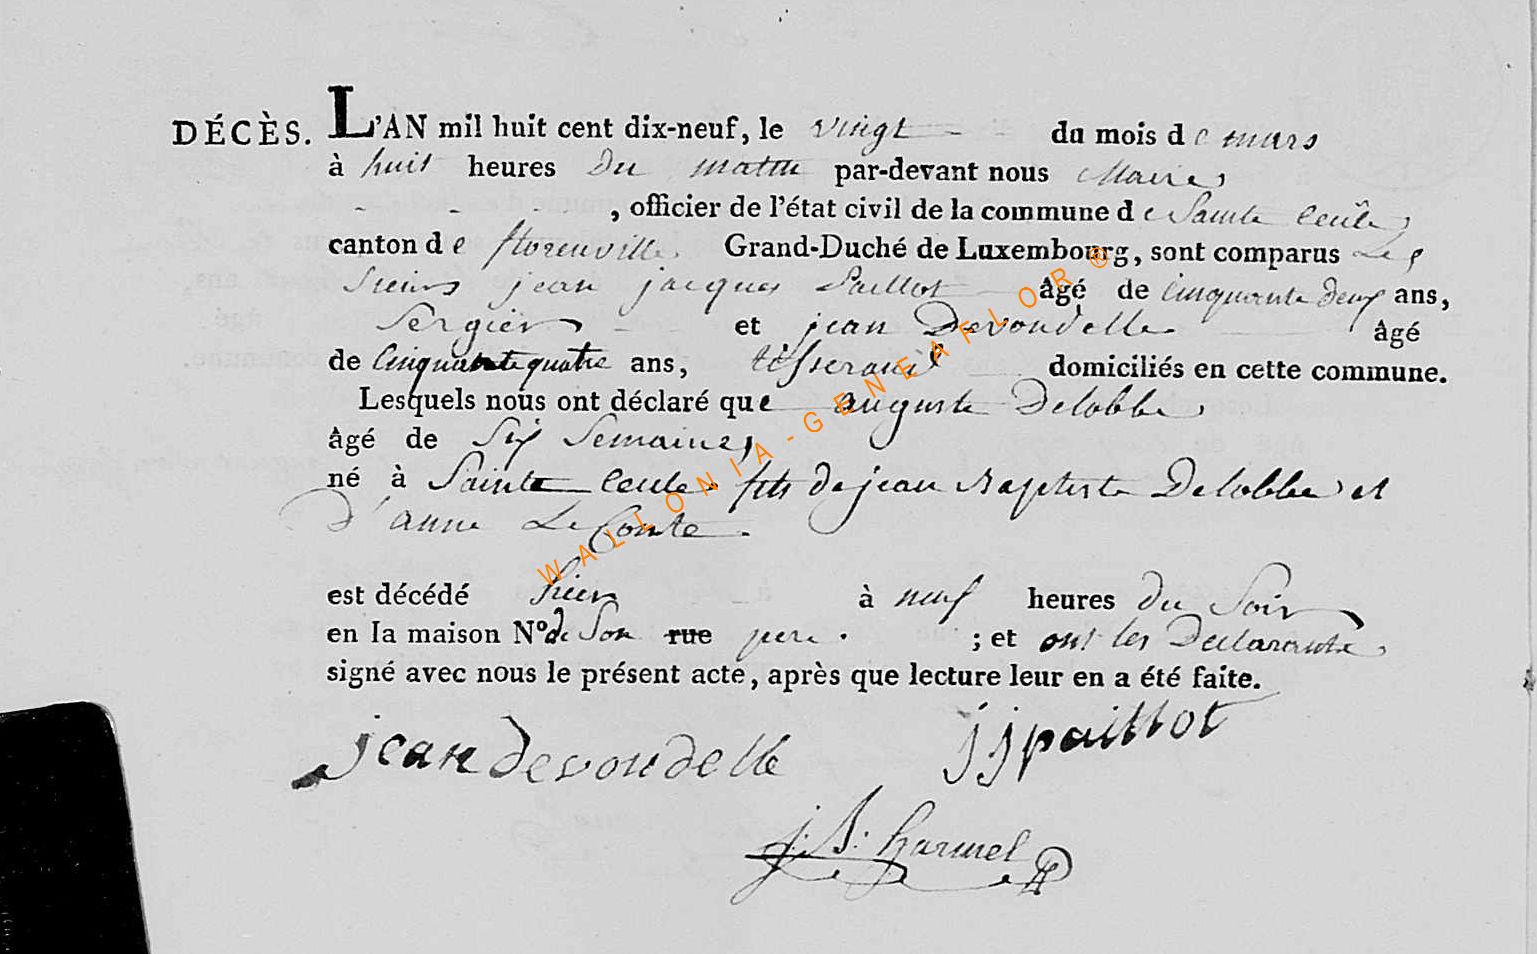 DÉCÈS. L'AN mil huit cent dix-neuf, le vingt du mois de mars
à huit heures Du matin par-devant nous Maire
, officier de l'état civil de la commune de Sainte Cecile
canton de florenville Grand-Duché de Luxembourg, sont comparus Les
Sieurs jean jacques Paillot âgé de Cinquante deux ans,
Sergier et jean Devoudelle âgé
de Cinquante quatre ans, tisserand domiciliés en cette commune.
Lesquels nous ont déclaré que auguste Delobbe
âgé de Six Semaines
né à Sainte Cecile fils de jean Baptiste Delobbe et
D'anne Le Comte.
est décédé hier à neuf heures Du Soir
en la maison N° de Son rue pere. ; et ont les Declarants
signé avec nous le présent acte, après que lecture leur en a été faite.
jean devoudelle jjpaillot
j. B: harmel
WALLONIA-GENEAFLOR ®